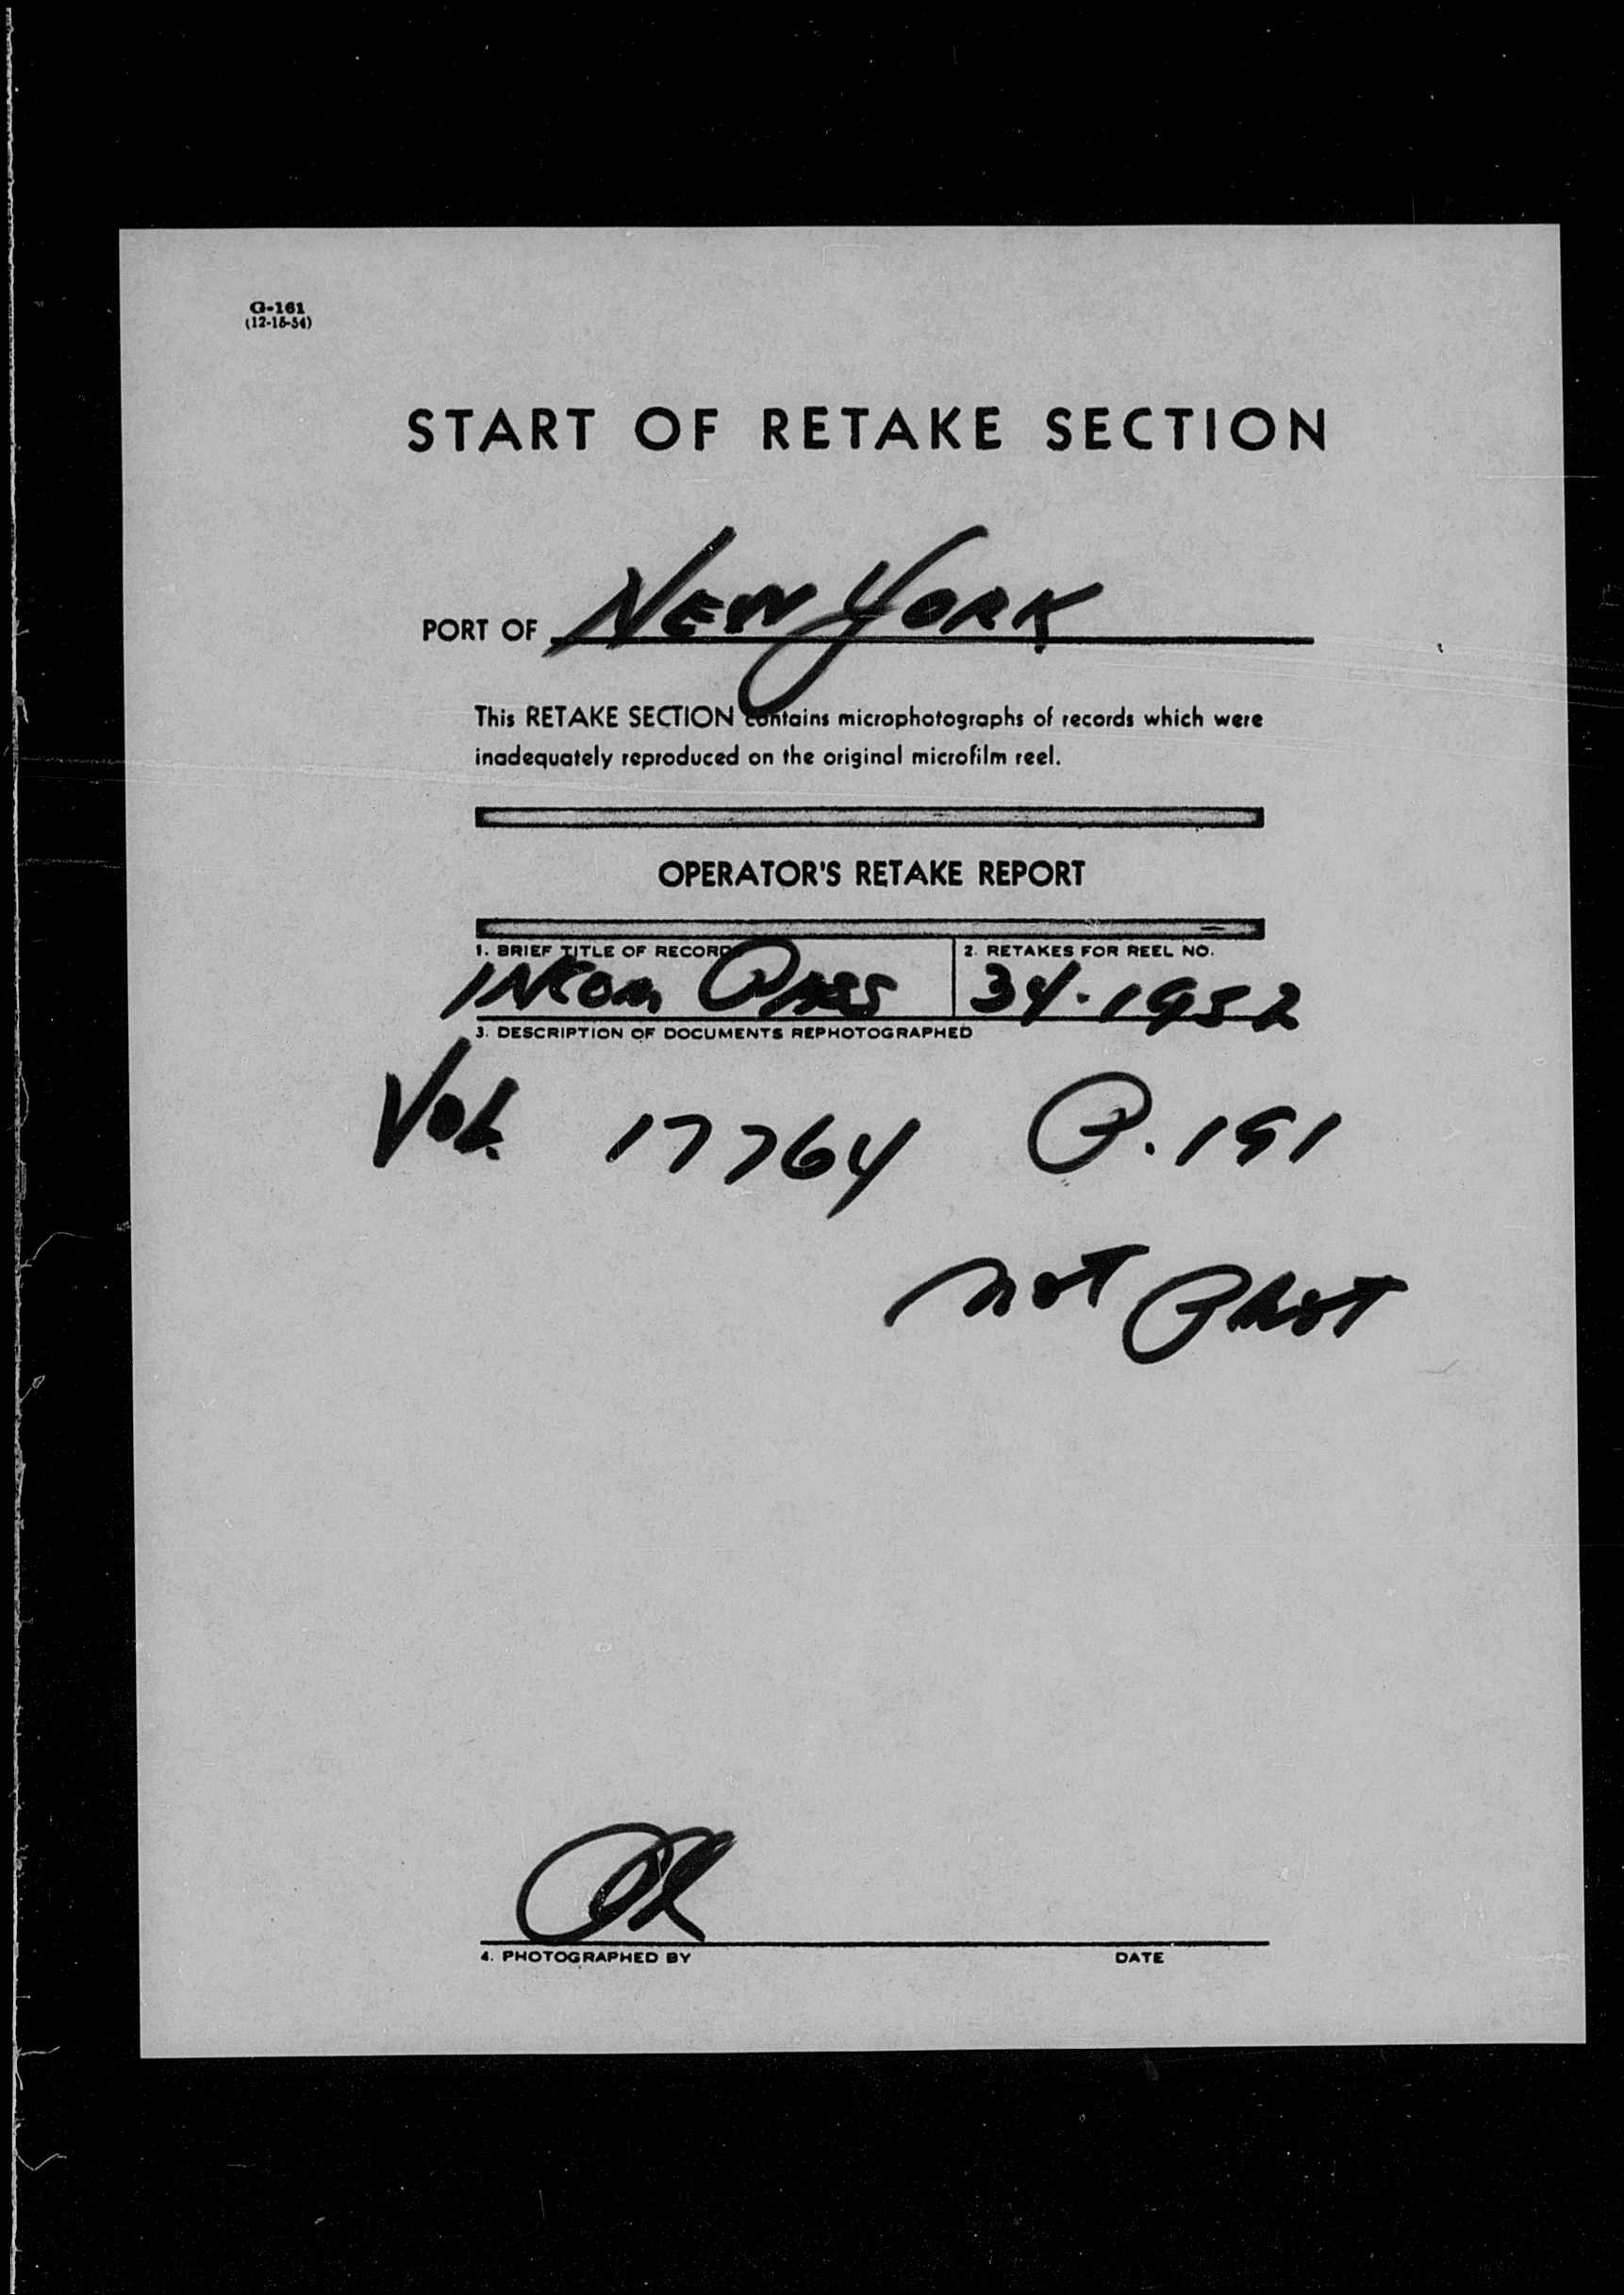 G-161
(12-15-54)
START OF RETAKE SECTION
PORT OF NEW YORK
This RETAKE SECTION contains microphotographs of records which were
inadequately reproduced on the original microfilm reel.
OPERATOR'S RETAKE REPORT
1. BRIEF TITLE OF RECORDS 2. RETAKES FOR REEL NO.
INCOM PASS 34-1952
3. DESCRIPTION OF DOCUMENTS REPHOTOGRAPHED
Vol. 17764 P. 191
not Phot
4. PHOTOGRAPHED BY DATE